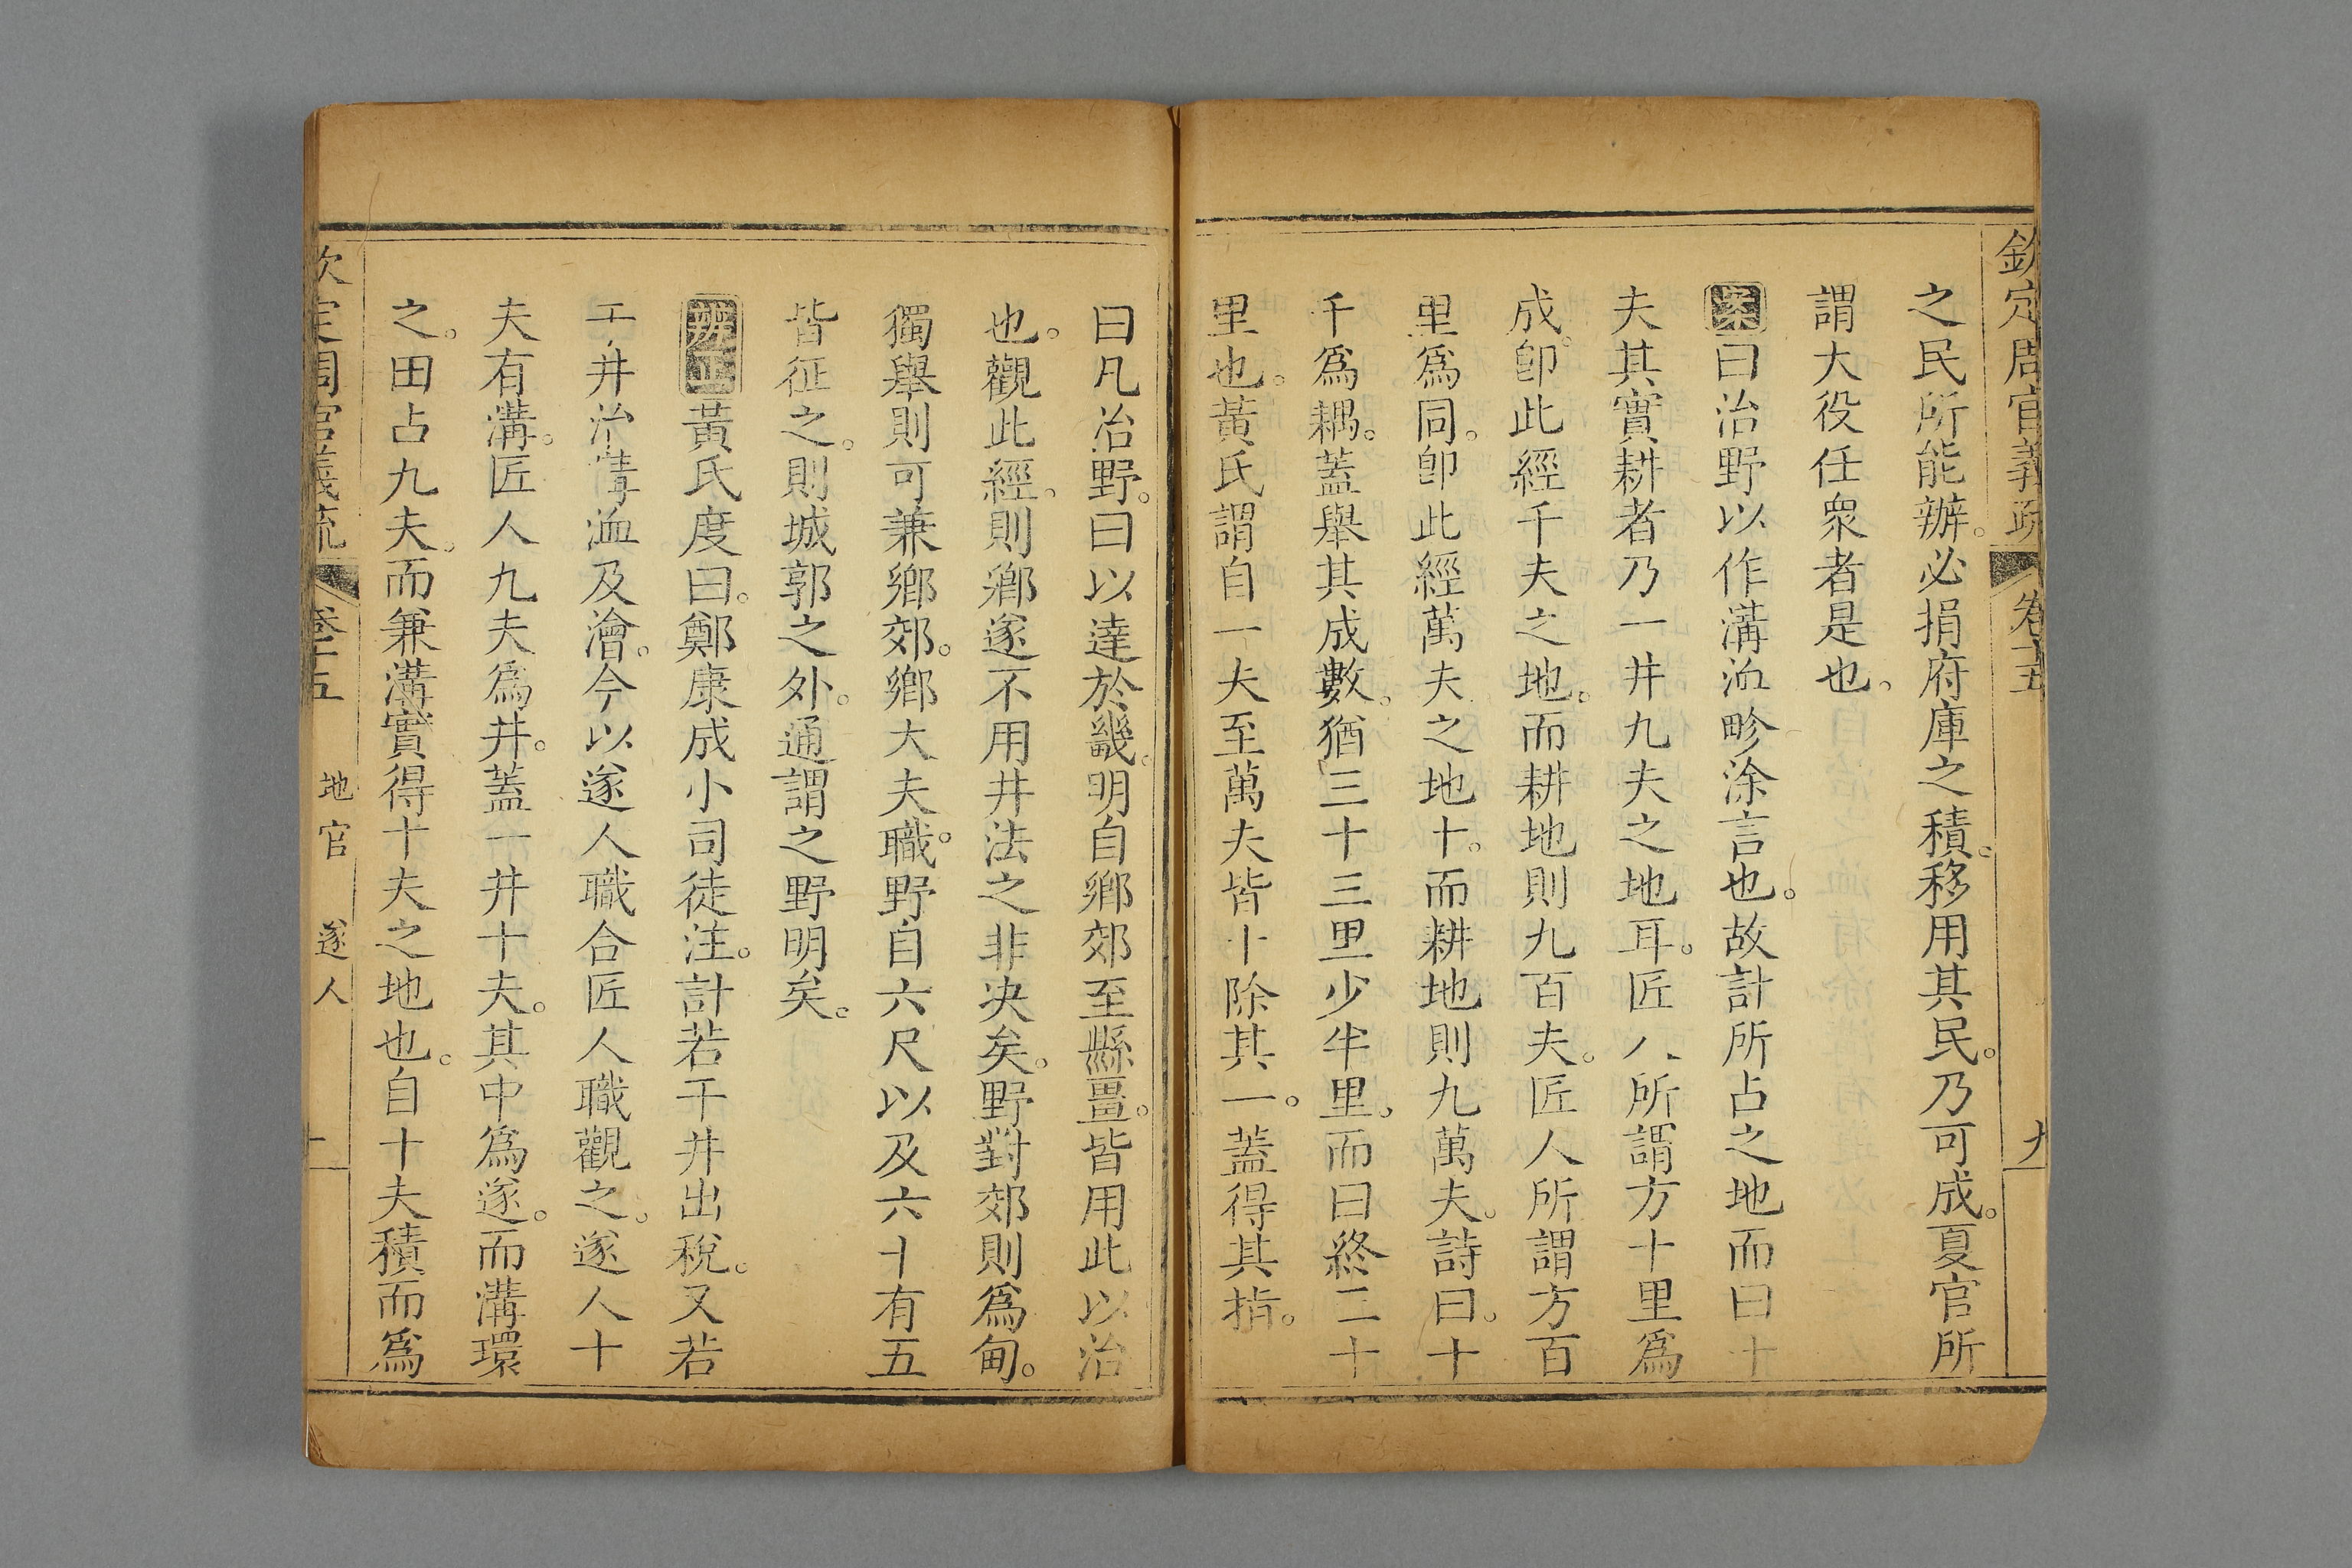 欽定周官義疏 卷十五 九
之民所能辦。必捐府庫之積。移用其民。乃可成。夏官所
謂大役任眾者是也。
案曰治野以作溝洫畛涂言也。故計所占之地而曰十
夫其實耕者乃一井九夫之地耳。匠人所謂方十里爲
成。卽此經千夫之地。而耕地則九百夫。匠人所謂方百
里爲同。卽此經萬夫之地十。而耕地則九萬夫。詩曰。十
千爲耦。蓋舉其成數。猶三十三里少半里。而曰終三十
里也。黃氏謂自一夫至萬夫皆十除其一。蓋得其指。
曰凡治野。曰以達於畿。明自鄉郊至縣畺。皆用此以治
也。觀此經。則鄉遂不用井法之非決矣。野對郊則爲甸。
獨舉則可兼鄉郊。鄉大夫職。野自六尺以及六十有五
皆征之。則城郭之外。通謂之野明矣。
辨正黃氏度曰。鄭康成小司徒注。計若干井出稅。又若
干井治溝洫及澮。今以遂人職合匠人職觀之。遂人十
夫有溝。匠人九夫爲井。蓋一井十夫。其中爲遂。而溝環
之。田占九夫。而兼溝實得十夫之地也。自十夫積而爲
欽定周官義疏 卷十五 地官 遂人